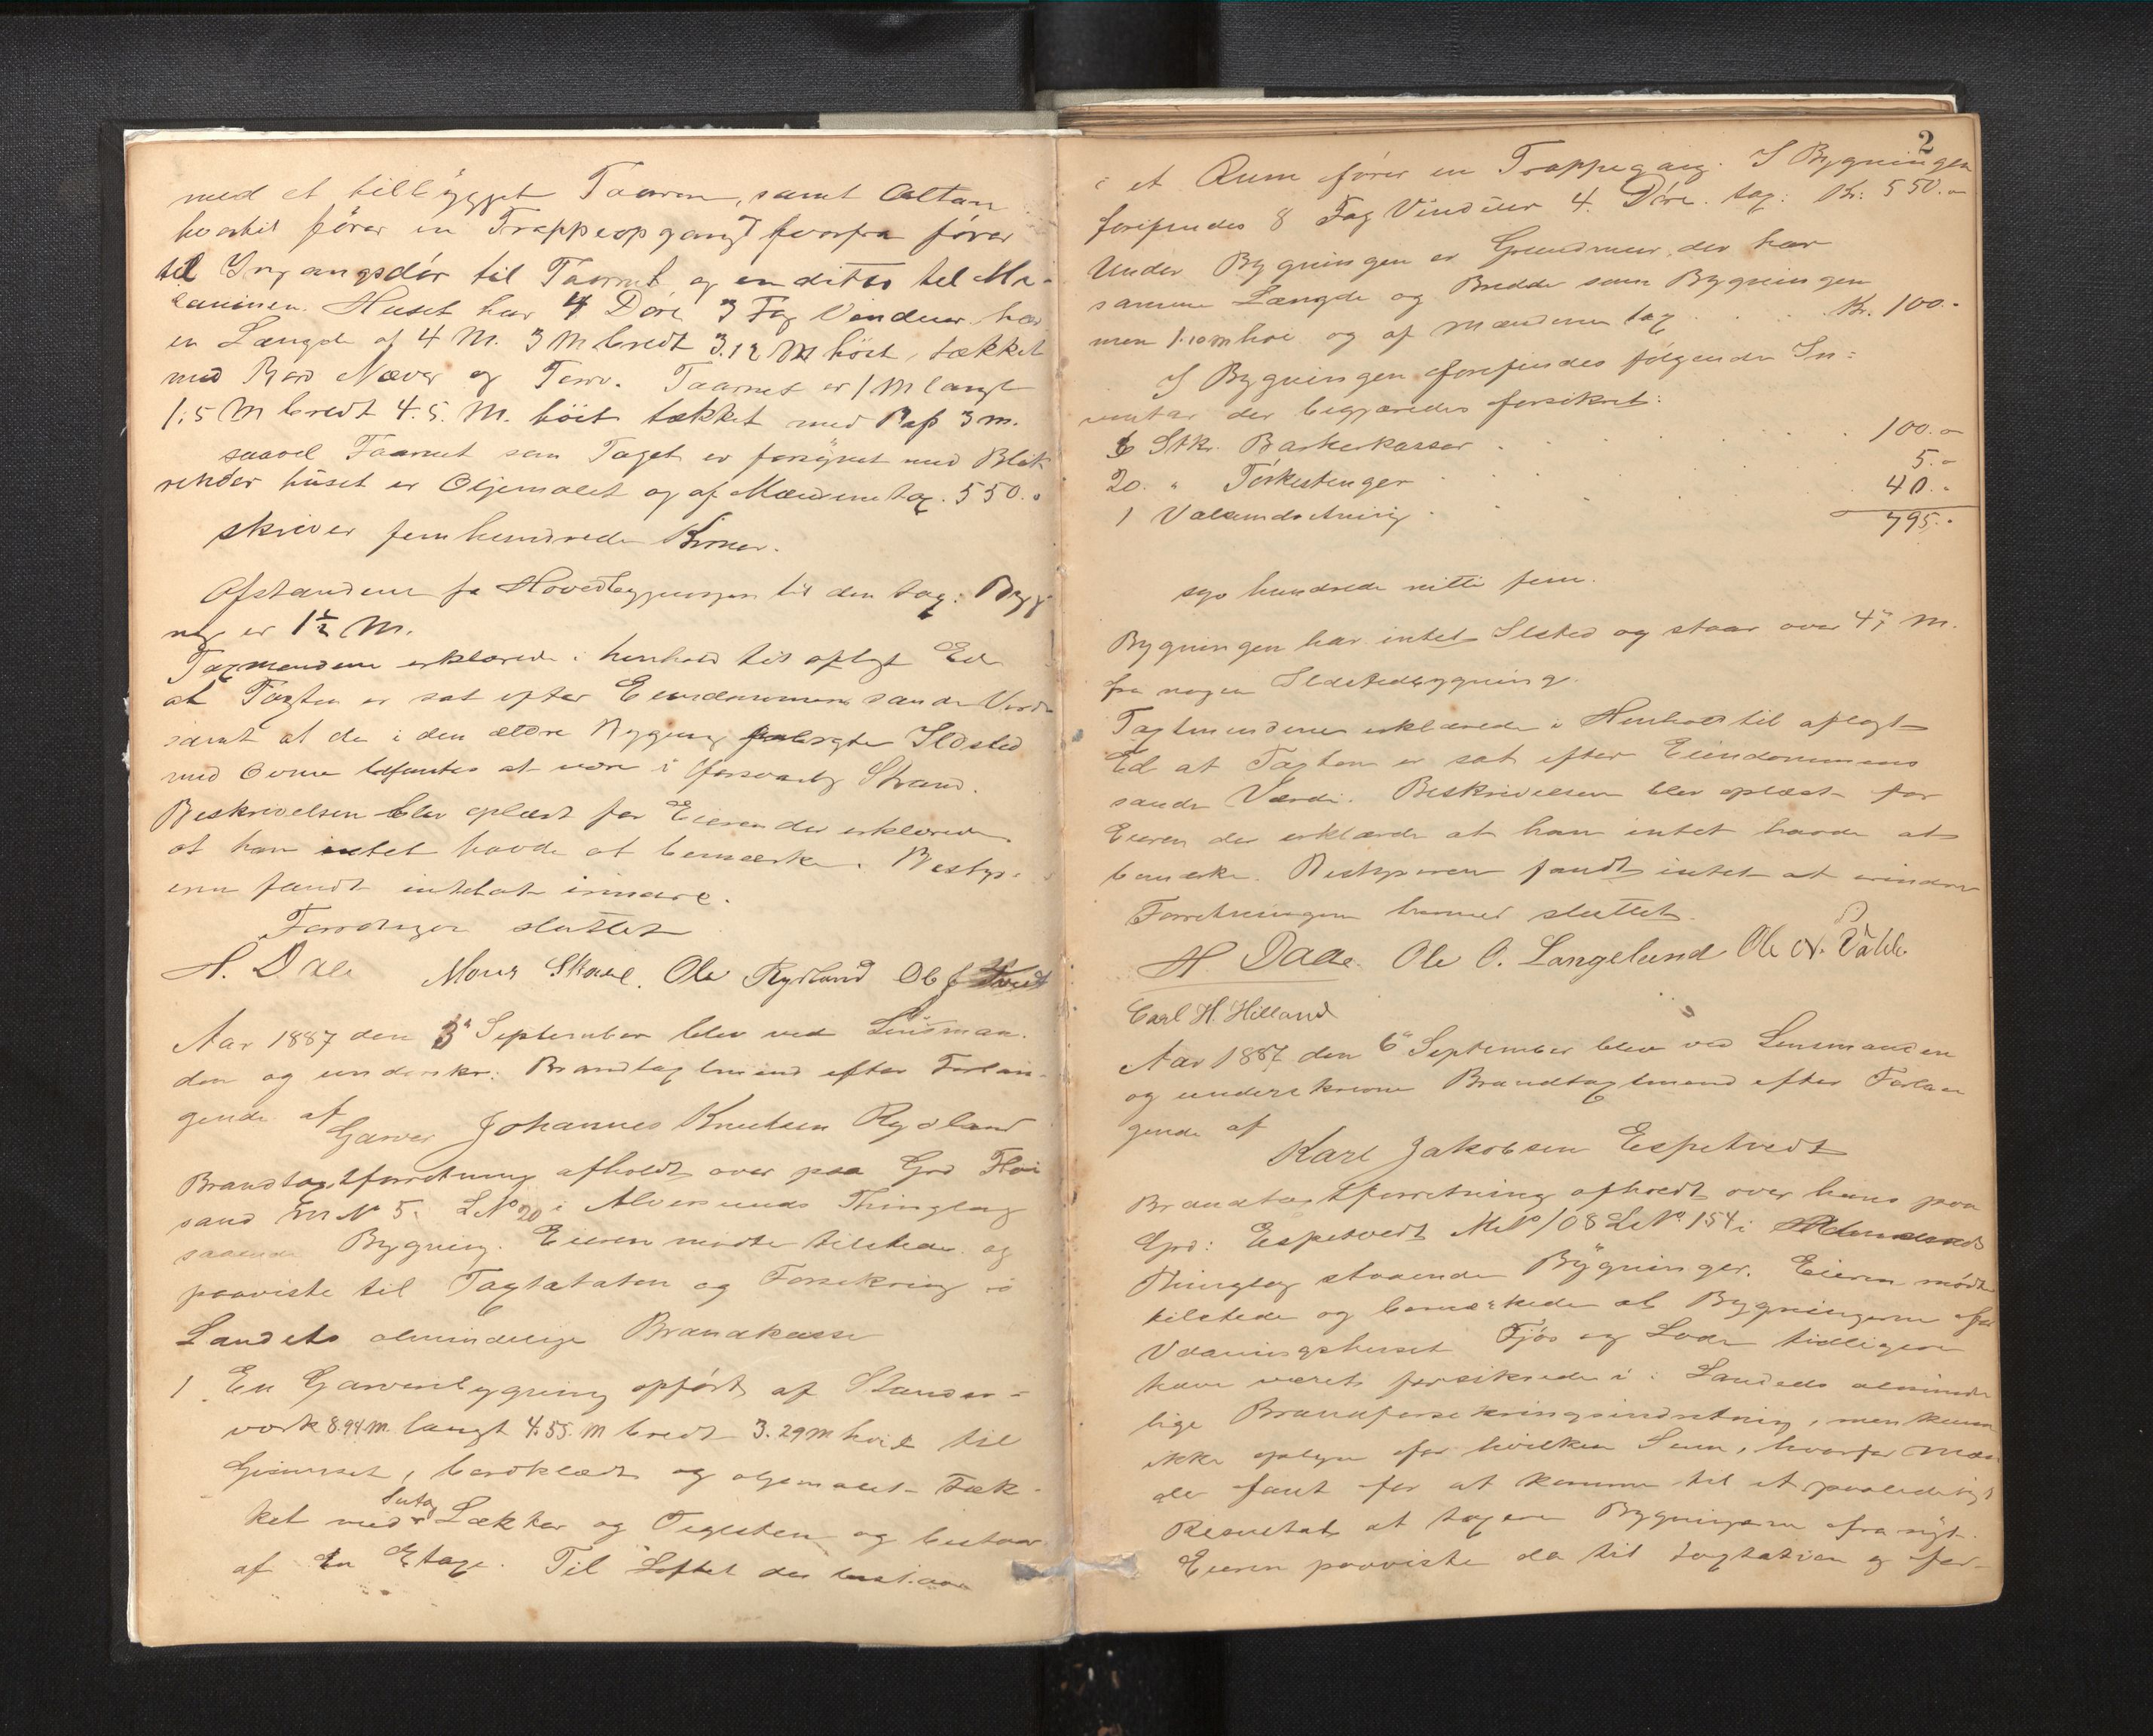 med et tilbygget Taarn, samt Altan
hvortil fører en Trappeopgang hvorfra fører
til Ingangsdør til Taarnet og en ditto til
Huset har 4 Døre 3 Fag Vinduer har
en Længde af 4 M. 3 M bredt 3.12 M høit, tækket
med Bord Næver og Torv. Taarnet er 1 M langt
1.5 M bredt 4.5. M. høit tækket med Pap 3 m.
saavel Taarnet som Taget er forsynet med Blik
render huset er Oljemalet og af Mændene tax. 550.-
skriver femhundrede Kroner.
Afstanden fra Hovedbygningen til den tax: Byg
ning er 1½ M.
Taxmændene erklærede i henhold til aflagt Ed
at Taxten er sat efter Eiendommens sande Værdi
samt at de i den ældre Bygning Ildsted
med Ovne befantes at være i forsvarlig Stand.
Beskrivelsen blev oplæst for Eieren der erklærede
at han intet havde at bemærke. Besty-
eren fandt intet at
Forretningen sluttet
H. Dale Mons Ole Rydland
Aar 1887 den 3' September blev ved Lensman-
den og underskr: Brandtaxtmænd efter Forlan-
gende af Garver Johannes Knutsen Rydland
Brandtaxtforretning afholdt over paa Grd
sand M No 5. L No 20 i Alversunds Thinglag
staaende Bygning. Eieren mødte tilstede og
paaviste til Taxtation og Forsikring i
Landets almindelige Brandkasse
1. En Garveribygning opført af Stander-
værk 8.94 M. langt 4.55. M bredt 3.29 M høit til
Gesimset, bordklædt og oljemalet Tæk-
ket med Sutag Lækter og Teglsten og bestaar
af En Etage. Til Loftet der bestaar
2
i et Rum fører en Trappegang. I Bygningen
forefindes 8 Fag Vinduer 4. Døre. tax: Kr: 550.-
Under Bygningen er Grundmur, der har
samme Længde og Bredde som Bygningen
men 1.10 m høi og af Mændene tax . . . Kr. 100.-
I Bygningen forefindes følgende In-
ventar der begjæredes forsikret:
6 Stk. Barkekasser . . . 100.-
20. " Tørkestenger . . . 5.-
1 . . . 40.-
795.-
syv hundrede nitti fem.
Bygningen har intet Ilsted og staar over M.
fra nogen Ildstedsbygning.
Taxtmændene erklærede i Henhold til aflagt
Ed at Taxten er sat efter Eiendommens
sande Værdi. Beskrivelsen blev oplæst for
Eieren der erklærede at han intet havde at
bemærke. Bestyreren fandt intet at erindre
Forretningen hermed sluttet.
H Dale. Ole O. Langelund Ole N.
Carl H. Hilland
Aar 1887 den 6" September blev ved Lensmanden
og underskrevne Brandtaxtmænd efter Forlan
gende af
Karl Jakobsen Espetvedt
Brandtaxtforretning afholdt over hans paa
Grd: Espetvedt M No 108 L No 154 i
Thinglag staaende Bygninger. Eieren mødte
tilstede og bemærkede at Bygningerne
Vaaningshuset Fjøs og Lade tidligere
have været forsikrede i Landeds almind-
lige Brandforsekringsindretning, men kunne
ikke oplyse for hvilken Sum, hvorfor Mæn
de fant for at komme til et paalideligt
Resultat at taxere Bygningerne fra nyt.
Eieren paaviste da til taxtation og for-